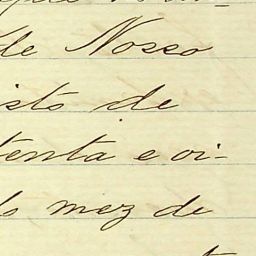 de Nosso
isto de
tenta e oi-
mez de